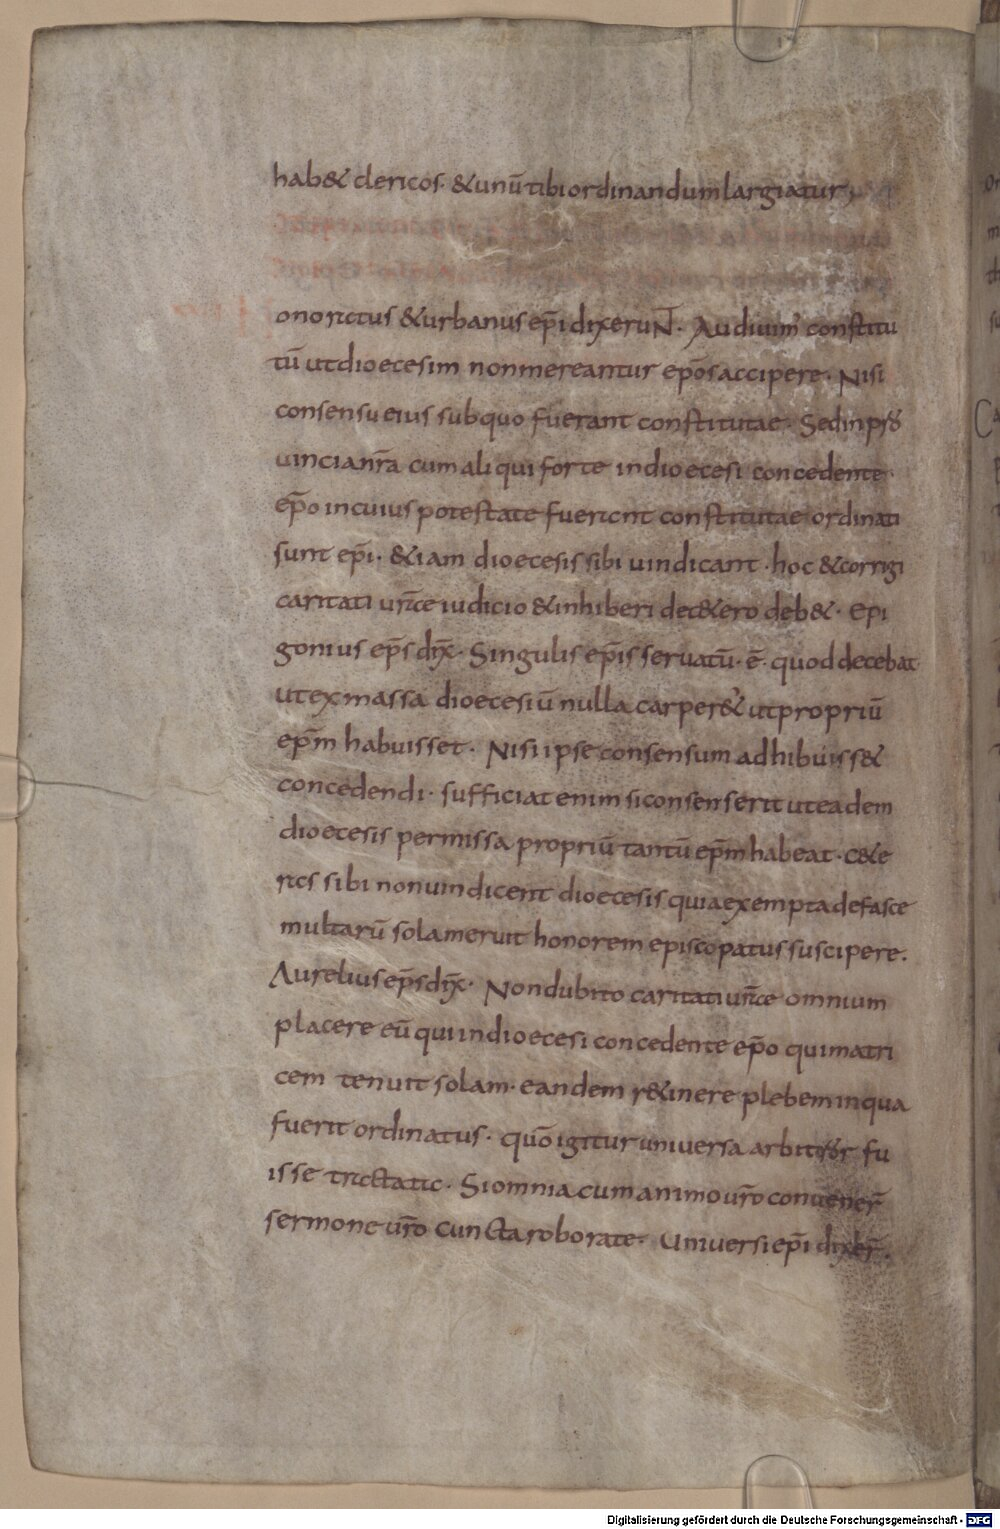 hab& clericos· &unū tibi ordinandum largiatur;
onoratus &urbanus ep̄i dixeruNT· Audiuim' constitu
tū ut dioecesim non mereantur ep̄os accipere· Nisi
consensu eius sub quo fuerant constitutae· Sed in pro
uincia nr̄a cum aliqui forte in dioecesi concedente
ep̄o in cuius potestate fuerant constitutae ordinati
sunt ep̄i· &iam dioecesis sibi uindicant· hoc &corrigi
caritati ur̄ae iudicio &inhiberi dec&ero deb&· Epi
gonius ep̄s dix̄· Singulis ep̄is seruatū· ē· quod decebat
ut ex massa dioecesiū nulla carper&' ut propriū
ep̄m habuisset· Nisi ipse consensum adhibuiss&
concedendi· sufficiat enim si consenserit ut eadem
dioecesis permissa propriū tantū ep̄m habeat· c&e
ras sibi non uindicent dioecesis quia exempta de fasce
multarū sola meruit honorem episcopatus suscipere·
Aurelius ep̄s dix̄· Non dubito caritati ur̄ae omnium
placere eū qui in dioecesi concedente ep̄o qui matri
cem tenuit solam· eandem r&inere plebem in qua
fuerit ordinatus· quō igitur uniuersa arbitror fu
isse tractata· Si omnia cum animo ur̄o conuener̄
sermone ur̄o cuncta roborate· Uniuersi ep̄i dixer̄·
Digitalisierung gefördert durch die Deutsche Forschungsgemeinschaft - DFG